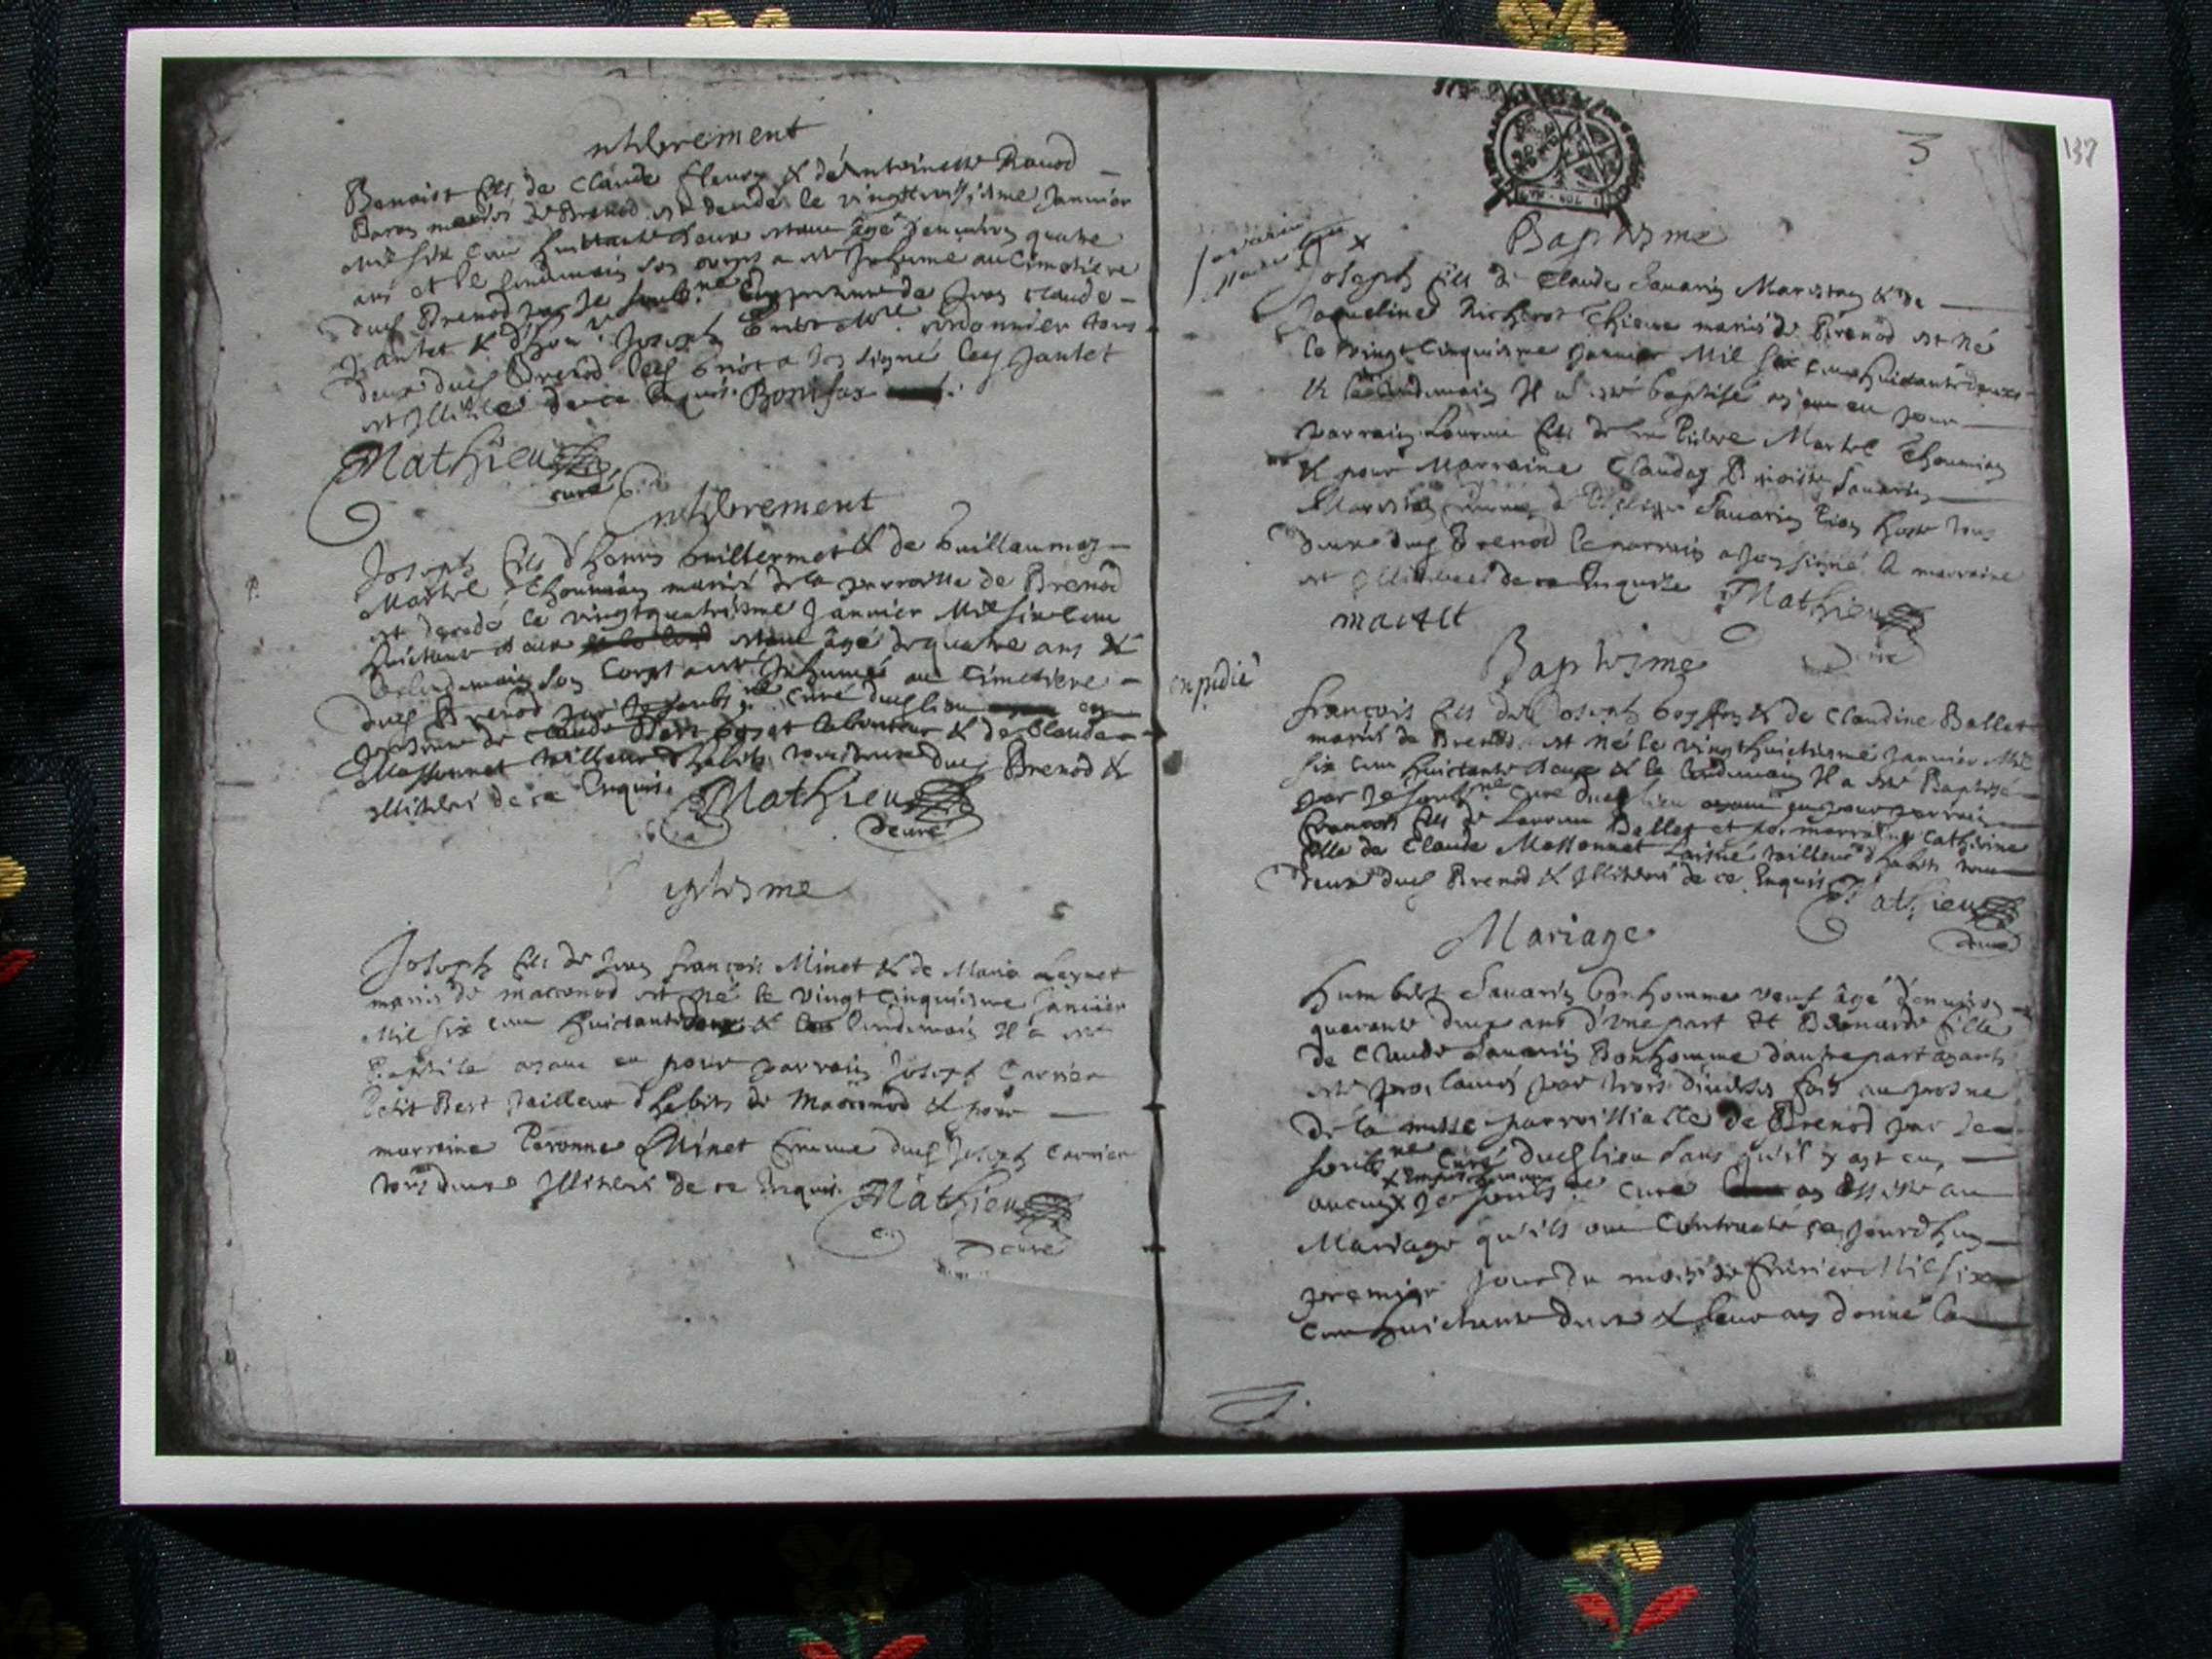 Enterrement
Benoist fils de Claude fleury & de Antoinette Ravod
Baron mariés de Brenod est decedé le vingttroisiesme Janvier
Mil six cens huittante deux estant âgé d'environ quatre
ans et le lendemain son corps a esté Inhumé au Cimetiere
dud Brenod par Je soubs.né en presence de Jean claude
Jantet & d'hon. Joseph cordonnier tous
deux dud Brenod led a soy signé led Jantet
est Illiteré de ce Enquis. Bonifax
Mathieu
curé
Enterrement
Joseph fils d'henry Guillermet & de Guillaumaz
Martel Thoumian mariés de la parroisse de Brenod
est decedé le vingtquatriesme Janvier Mil six cens
huictante deux estant âgé de quatre ans &
le lendemain son Corps a esté Inhumé au Cimetiere
dud Brenod par Je soubs.né curé dud lieu en
presence de claude laboureur & de Claude
Massonnet tailleur d'habits tous deux dud Brenod &
Illiterés de ce Enquis. Mathieu
curé
Baptisme
Joseph fils de Jean françois Minet & de Maria
mariés de macconod est né le vingt cinquiesme Janvier
Mil six cens huictantedeux & le lendemain Il a esté
Baptisé ayant eu pour parrain Joseph Carrier
Petit Best Tailleur d'habits de Macconod & pour
marraine Peronne Minet femme dud Joseph Carrier
tous deux Illiterés de ce Enquis. Mathieu
curé
3
137
Baptisme
Joseph fils de Claude Savarin Marestan & de
Jaqueline Richerot Thieure mariés de Brenod est né
le vingt cinquiesme Janvier Mil six cens huictante deux
& le lendemain Il a esté baptisé ayant eu pour
parrain Laurent fils de feu Pierre Martel Thoumian
& pour Marraine Claudaz Benoiste Savarin
Marestan femme de Philippe Savarin tous
deux dud Brenod le parrain a soy signé la marraine
est Illiteree de ce Enquise Mathieu
martel
curé
Baptisme
expedié
françois fils de Joseph & de Claudine Ballet
mariés de Brenod est né le vingthuictiesme Janvier Mil
six cens huictante deux & le lendemain Il a esté Baptisé
par Je soubs.né Curé dud lieu ayant eu pour parrain
françois fils de Laurent Ballet et por marraine Catherine
fille de Claude Massonnet Laisné tailleur d'habits tous
deux dud Brenod & Illiterés de ce Enquis. Mathieu
curé
Mariage
Humbert Savarin bonhomme veuf âgé d'environ
quarante deux ans d'une part Et Bernarde fille
de Claude Savarin Bonhomme d'autre part ayants
esté proclamés par trois diverses fois au prosne
de la messe parroissialle de Brenod par Je
soubs.né Curé dud lieu sans qu'il y ayt eu
aucun x Empeschement Je soubs.né Curé ay assisté au
Mariage qu'ils ont Contracté ce Jourdhuy
premier jour du mois de febvrier Mil six
cens huictante deux & leur ay donné la